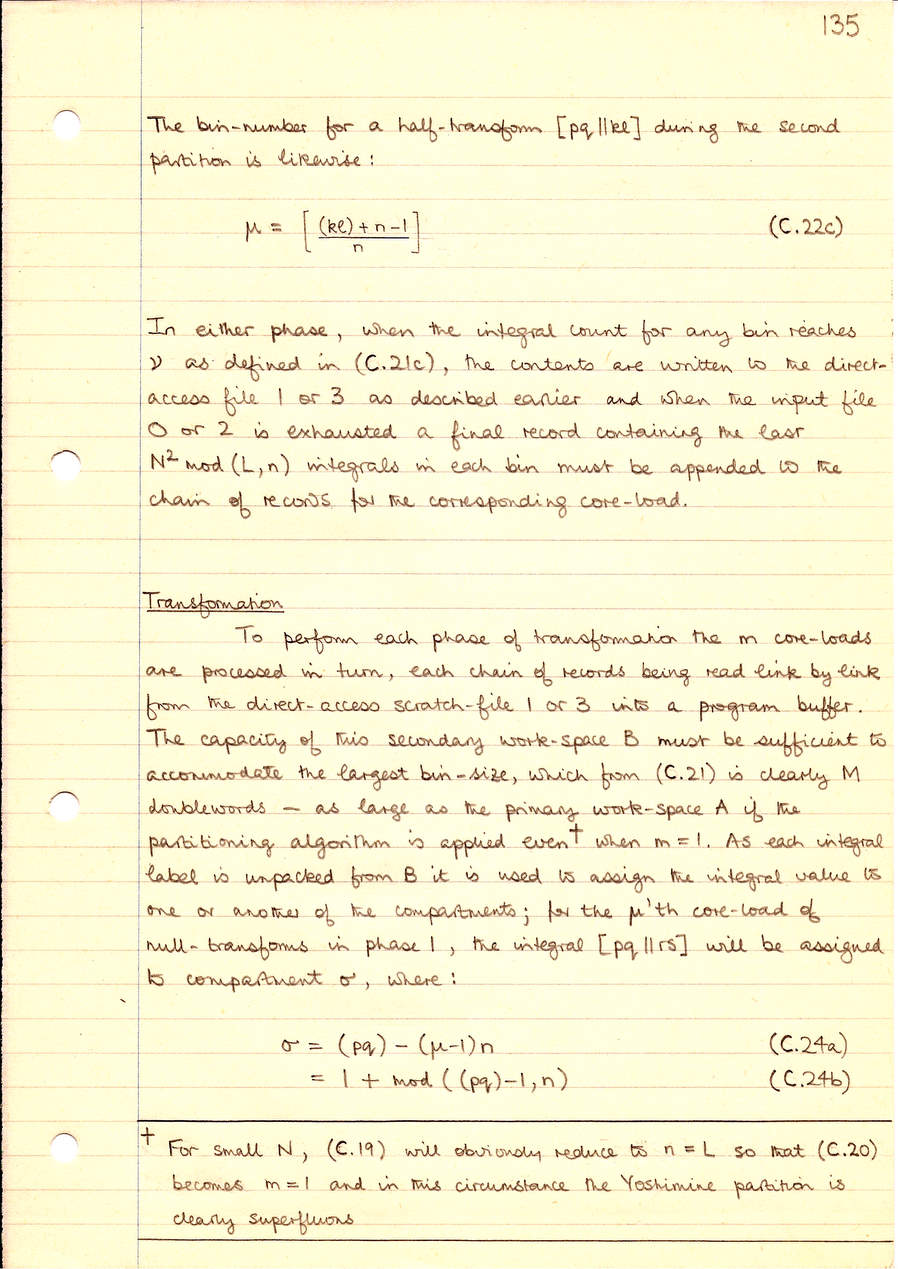 135
The bin-number for a half-transform [pq||kl] during the second
partition is likewise:
μ = [ (kl) + n - 1 / n ] (C.22c)
In either phase, when the integral count for any bin reaches
ν as defined in (C.21c), the contents are written to the direct-
access file 1 or 3 as described earlier and when the input file
0 or 2 is exhausted a final record containing the last
N² mod (L,n) integrals in each bin must be appended to the
chain of records for the corresponding core-load.
Transformation
To perform each phase of transformation the m core-loads
are processed in turn, each chain of records being read link by link
from the direct-access scratch-file 1 or 3 into a program buffer.
The capacity of this secondary work-space B must be sufficient to
accommodate the largest bin-size, which from (C.21) is clearly M
doublewords – as large as the primary work-space A if the
partitioning algorithm is applied even† when m = 1. As each integral
label is unpacked from B it is used to assign the integral value to
one or another of the compartments; for the μ'th core-load of
null-transforms in phase 1, the integral [pq||rs] will be assigned
to compartment σ, where:
σ = (pq) - (μ-1)n (C.24a)
= 1 + mod ((pq)-1, n) (C.24b)
† For small N, (C.19) will obviously reduce to n = L so that (C.20)
becomes m = 1 and in this circumstance the Yoshimine partition is
clearly superfluous